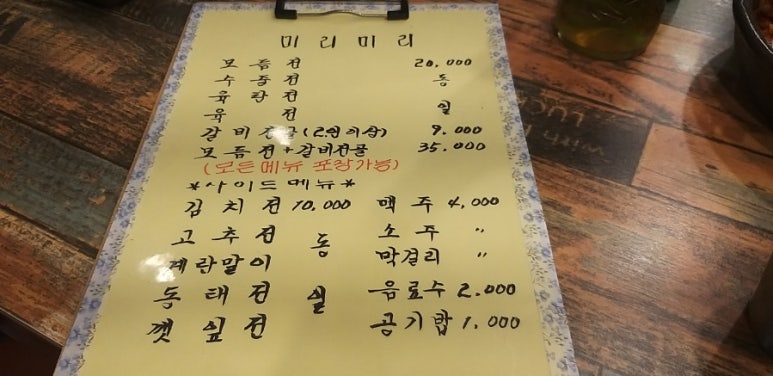 미리미리
모듬전 20,000
수중전 동
육탄전
육전 일
갈비전골(2인이상) 9.000
모듬전+갈비전골 35.000
(모든메뉴 포장가능)
*사이드메뉴*
김치전 10,000 맥주 4,000
고추전 동 소주 〃
계란말이 막걸리 〃
동태전 일 음료수 2.000
깻잎전 공기밥 1,000